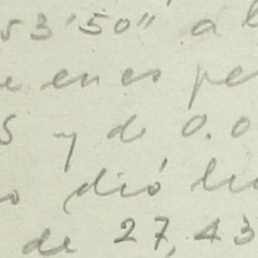 53'50" a
en es pe
S y de 0.0
dió le
de 27,43